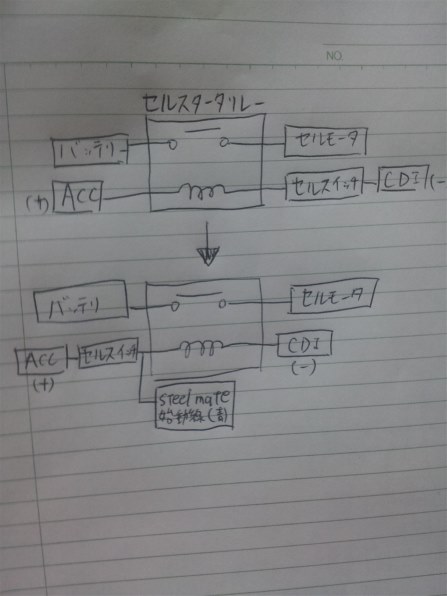 NO.
セルスタータリレー
バッテリー
セルモータ
(+) ACC
セルスイッチ
CDI (-)
バッテリ
セルモータ
ACC
(+)
セルスイッチ
CDI
(-)
steel mate
始動線(青)